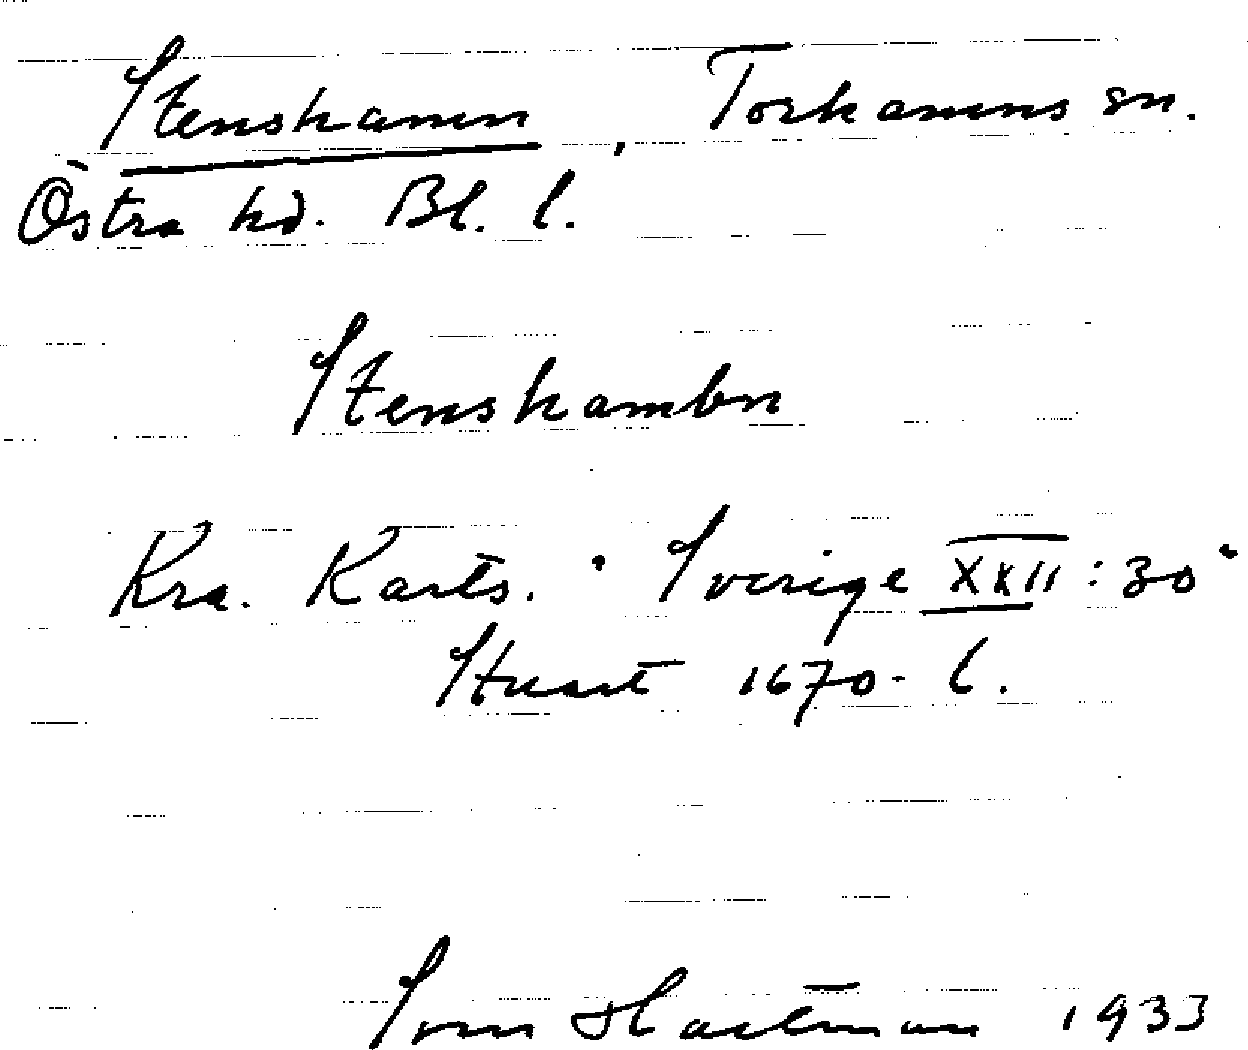 Stenshamn, Torhamns sn.
Östra hd. Bl. l.
Stenshambn
Kra. Karts. "Sverige XXII:30"
Stuart 1670-t.
Sven Hartman 1933